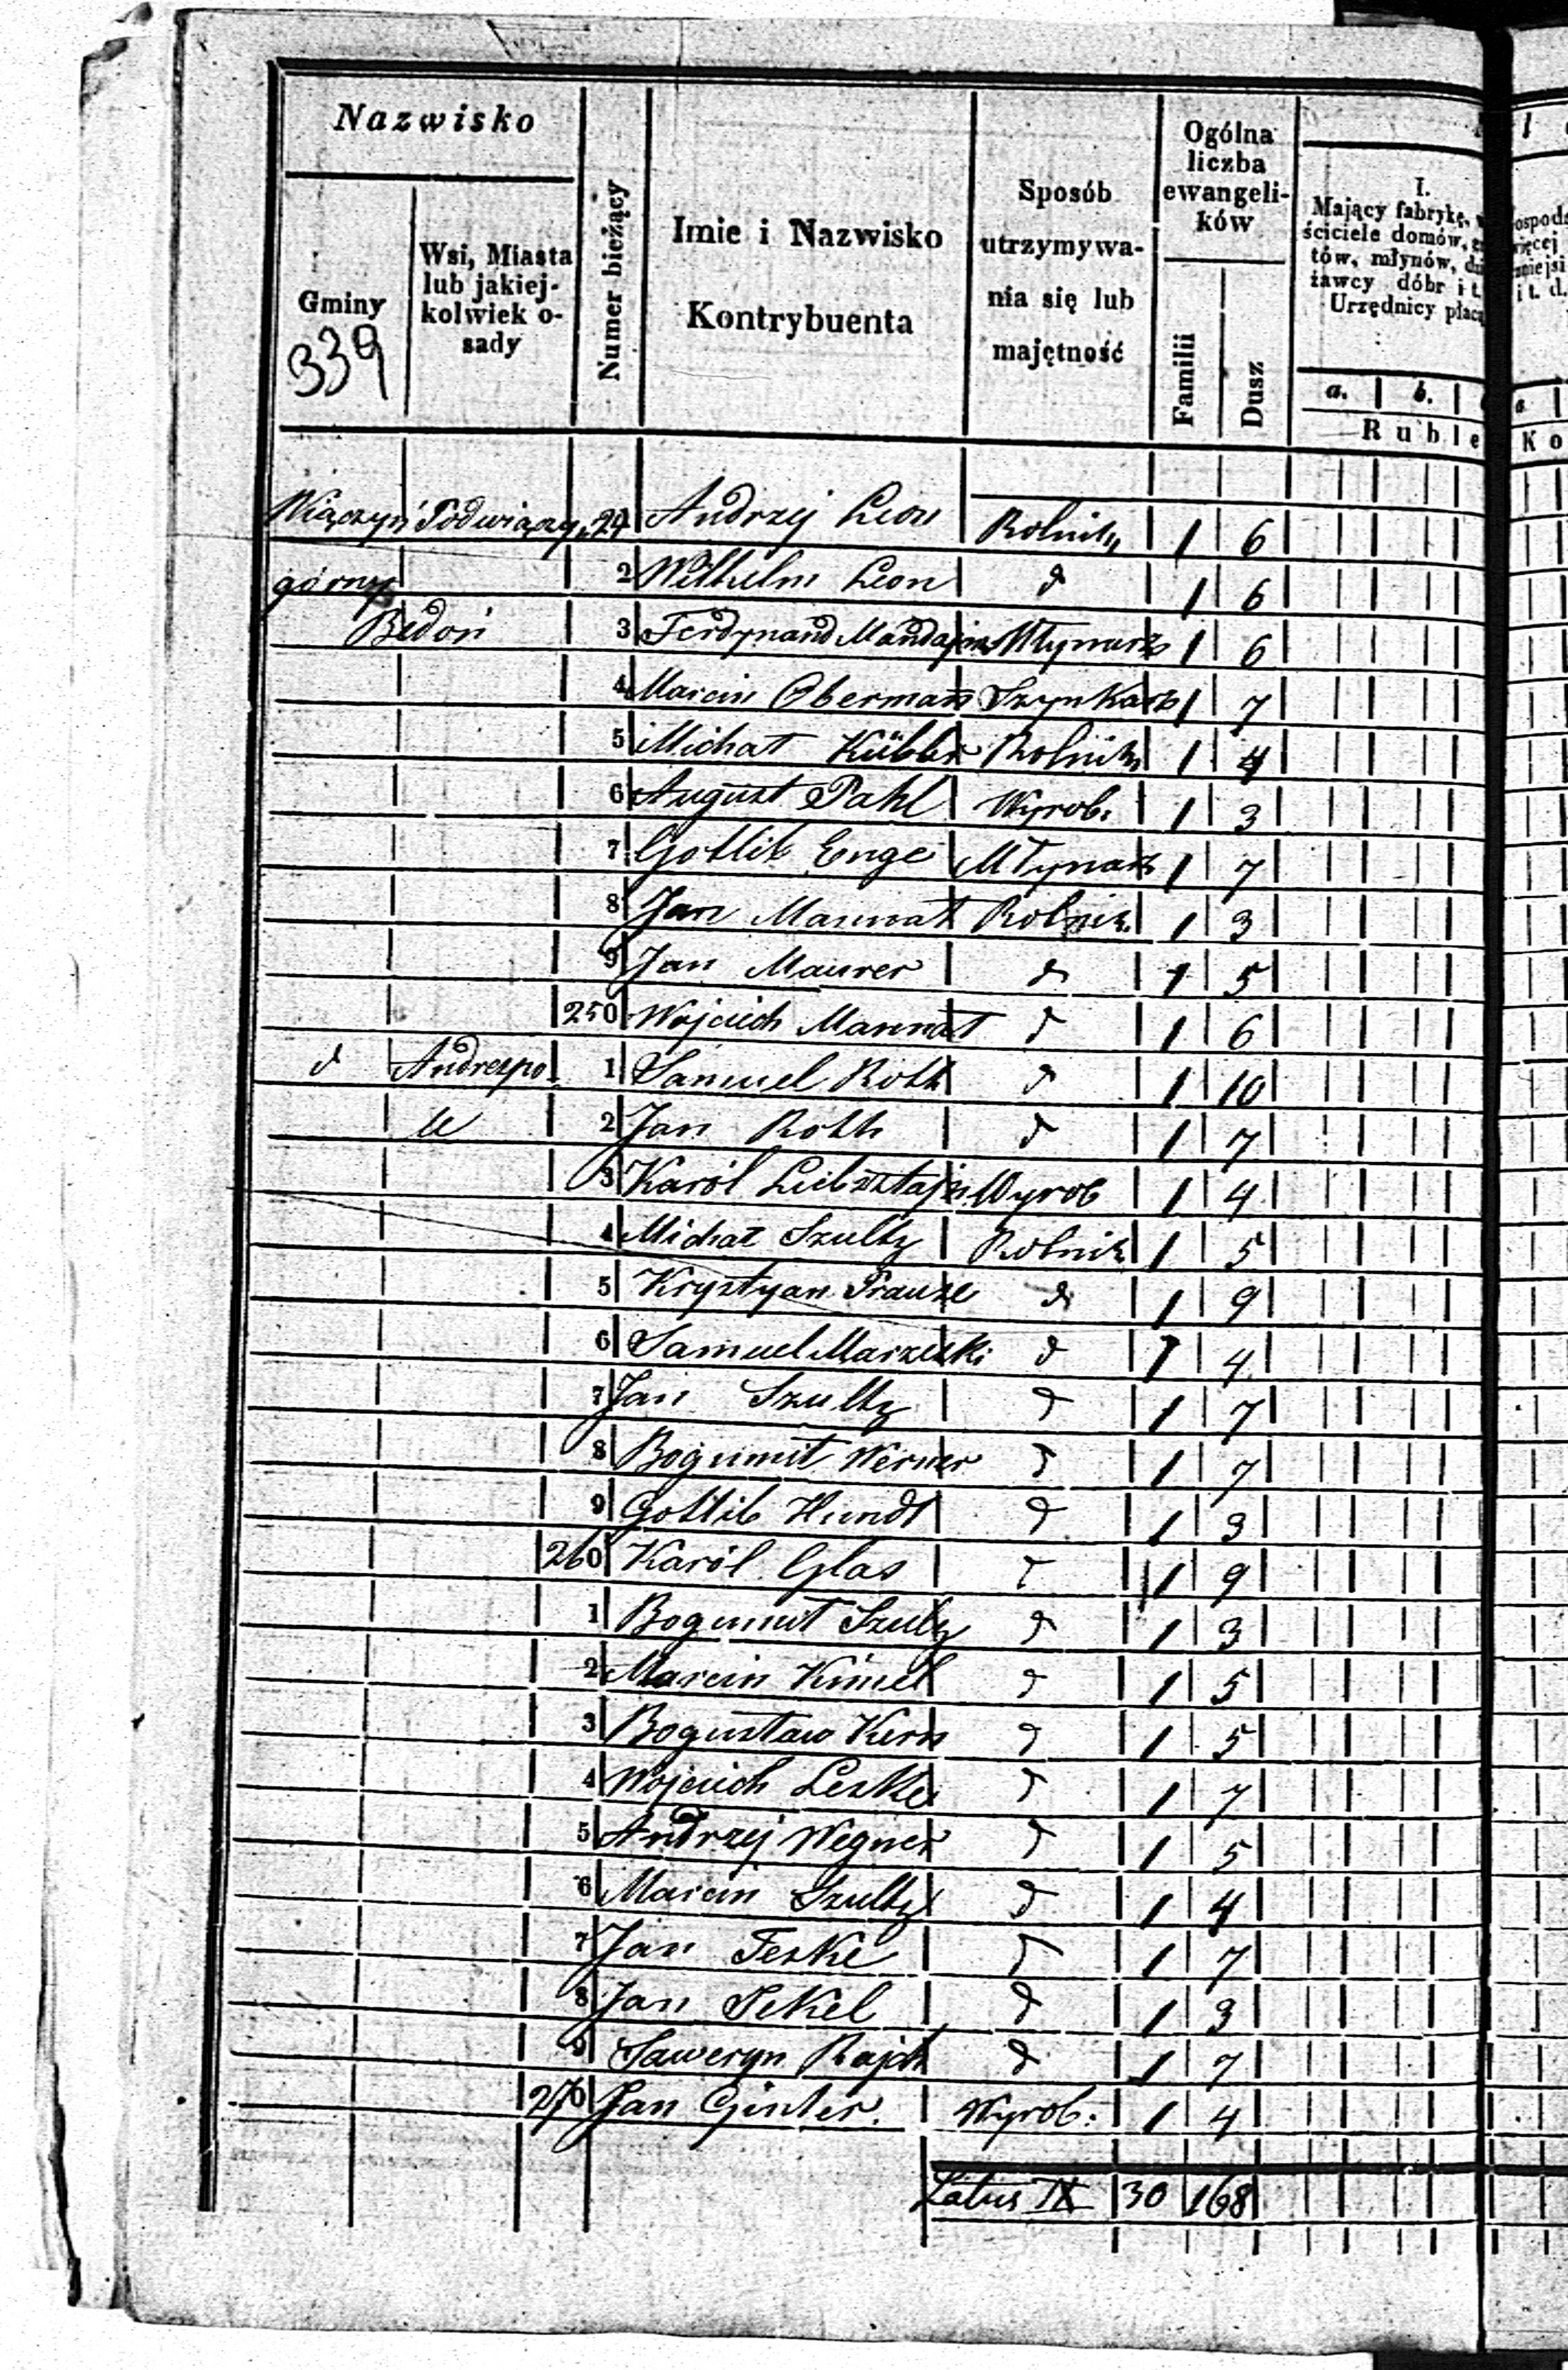 Nazwisko
Gminy
339
Wsi, Miasta
lub jakiej-
kolwiek o-
sady
Numer bieżący
Imie i Nazwisko
Kontrybuenta
Sposób
utrzymywa-
nia się lub
majętność
Ogólna
liczba
ewangeli-
ków
Familii
Dusz
I.
Mający fabrykę,
ściciele domów,
tów, młynów,
żawcy dóbr i t.
Urzędnicy płacą
a. b.
Ruble Ko
Wiączyń Podwiączyn 241 Andrzej Leon Rolnik 1 6
górny 2 Wilhelm Leon d 1 6
Bedoń 3 Ferdynand Mandajns Młynarz 1 6
4 Marcin Oberman Szynkarz 1 7
5 Michał Kübler Rolnik 1 4
6 August Pahl Wyrob. 1 3
7 Gotlib Enge Młynarz 1 7
8 Jan Mannat Rolnik 1 3
9 Jan Maurer d 1 5
250 Wojciech Mannat d 1 6
d Andrespo- 1 Samuel Roth d 1 10
le 2 Jan Roth d 1 7
3 Karól Leibsztajn Wyrob 1 4
4 Michał Szultz Rolnik 1 5
5 Krystyan Prauze d 1 9
6 Samuel Marzelski d 1 4
7 Jan Szultz d 1 7
8 Bogumił Werner d 1 7
9 Gotlib Hundt d 1 3
260 Karól Glas d 1 9
1 Bogumił Szultz d 1 3
2 Marcin Kimel d 1 5
3 Bogusław Kern d 1 5
4 Wojciech Leske d 1 7
5 Andrzej Wegner d 1 5
6 Marcin Szultz d 1 4
7 Jan Teske d 1 7
8 Jan Pekel d 1 3
9 Saweryn Rajch d 1 7
270 Jan Ginter. Wyrob: 1 4
Latus IX 30 168